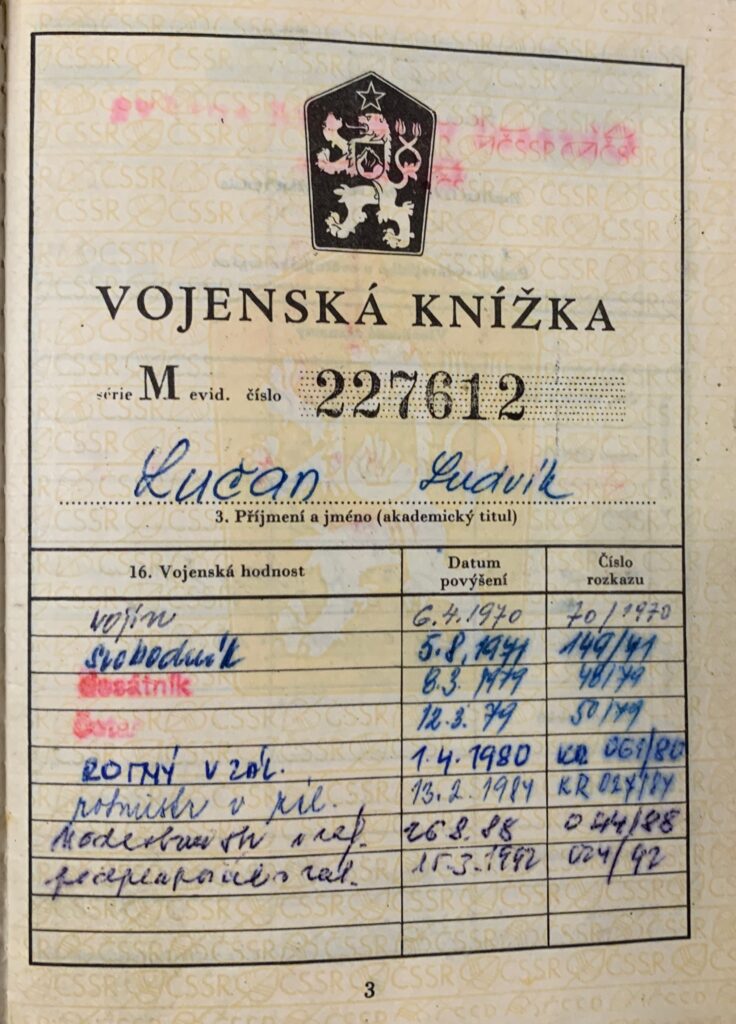 VOJENSKÁ KNÍŽKA
série M evid. číslo 227612
Lučan Ludvík
3. Příjmení a jméno (akademický titul)
16. Vojenská hodnost Datum povýšení Číslo rozkazu
vojín 6.4.1970 70/1970
svobodník 5.8.1971 149/71
desátník 8.3.1979 48/79
12.3.79 50/79
ROTNÝ V ZÁL. 1.4.1980 KR 061/80
rotmistr v zál. 13.2.1984 KR 027/84
nadrotmistr v zál. 26.8.88 044/88
podpraporčík v zál. 15.3.1992 024/92
3